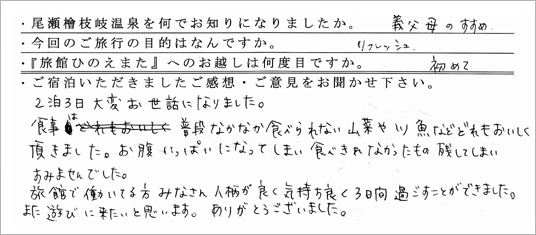 ・尾瀬檜枝岐温泉を何でお知りになりましたか。 義父母のすすめ
・今回のご旅行の目的はなんですか。 リフレッシュ
・『旅館ひのえまた』へのお越しは何度目ですか。 初めて
・ご宿泊いただきましたご感想・ご意見をお聞かせ下さい。
2泊3日大変お世話になりました。
食事は どれもおいしく 普段なかなか食べられない山菜や川魚などどれもおいしく
頂きました。お腹いっぱいになってしまい食べきれなかったもの残してしまい
すみませんでした。
旅館で働いてる方みなさん人柄が良く気持ち良く3日間過ごすことができました。
また遊びに来たいと思います。ありがとうございました。